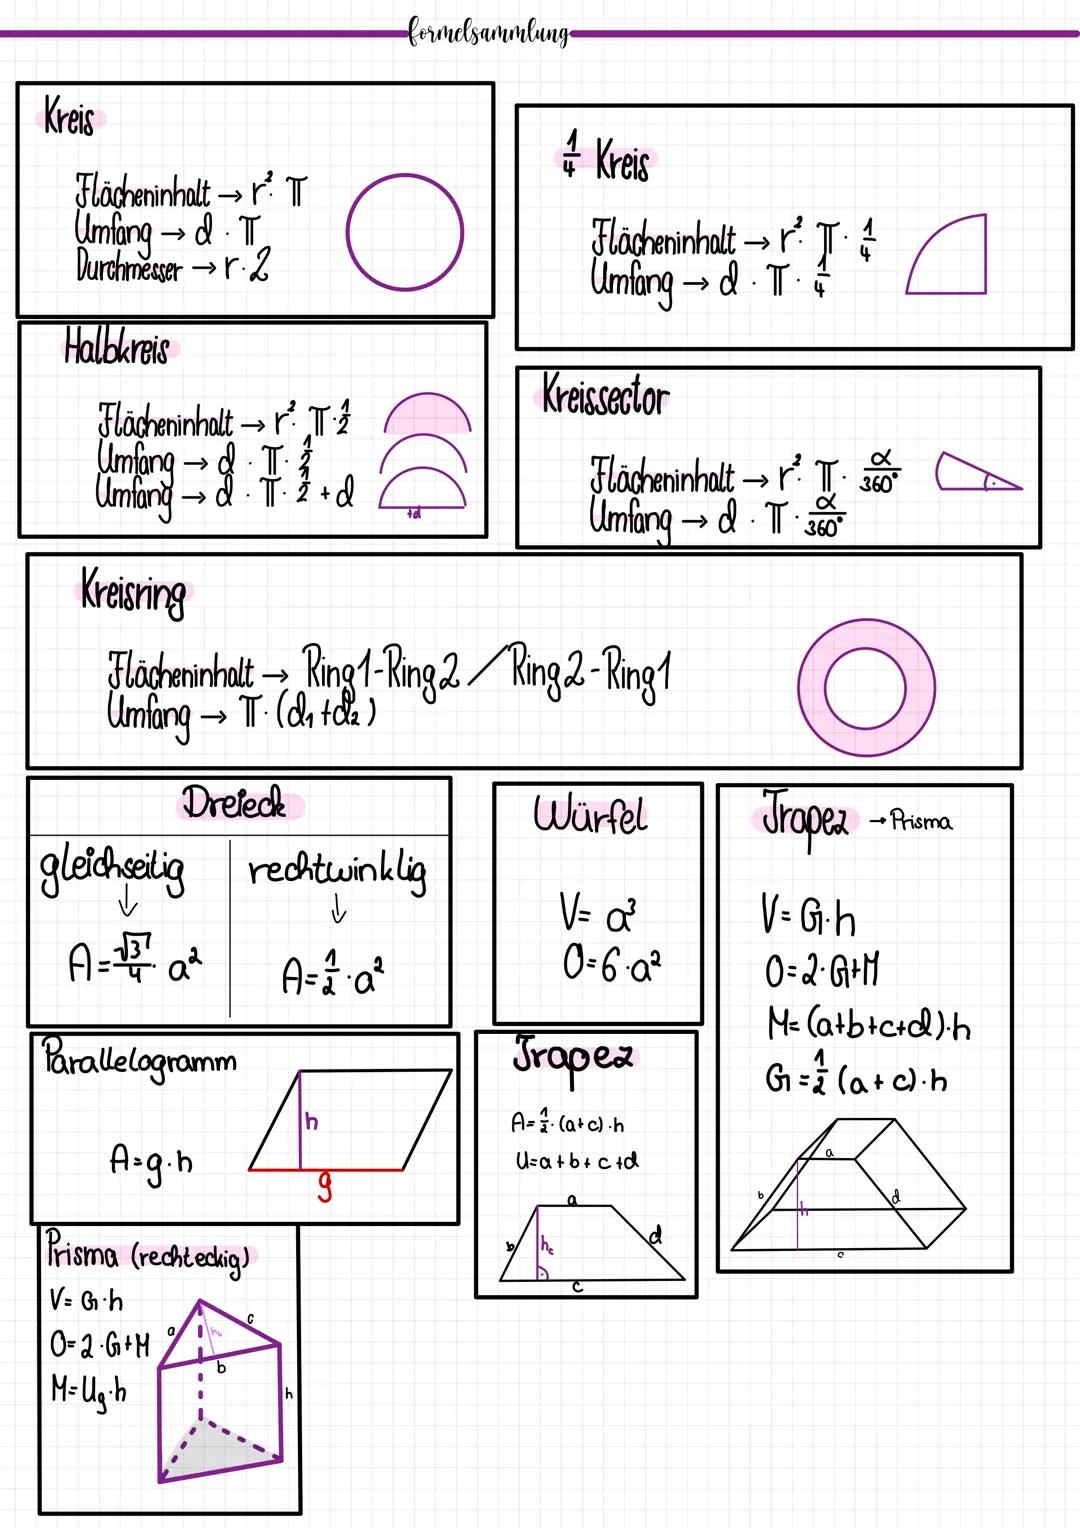 formelsammlung
Kreis
Flächeninhalt → r² · π
Umfang → d · π
Durchmesser → r · 2
1/4 Kreis
Flächeninhalt → r² · π · 1/4
Umfang → d · π · 1/4
Halbkreis
Flächeninhalt → r² · π · 1/2
Umfang → d · π · 1/2
Umfang → d · π · 1/2 + d
+d
Kreissector
Flächeninhalt → r² · π · α/360°
Umfang → d · π · α/360°
Kreisring
Flächeninhalt → Ring1-Ring2 / Ring2-Ring1
Umfang → π · (d₁ + d₂)
Dreieck
gleichseitig
↓
A = √3/4 · a²
rechtwinklig
↓
A = 1/2 · a²
Würfel
V = a³
O = 6 · a²
Trapez → Prisma
V = G · h
O = 2 · G + M
M = (a+b+c+d) · h
G = 1/2 (a + c) · h
a
b
h
d
c
Parallelogramm
A = g · h
h
g
Trapez
A = 1/2 · (a+c) · h
U = a + b + c + d
a
b
h꜀
d
c
Prisma (rechteckig)
V = G · h
O = 2 · G + M
M = Ug · h
a
c
b
h